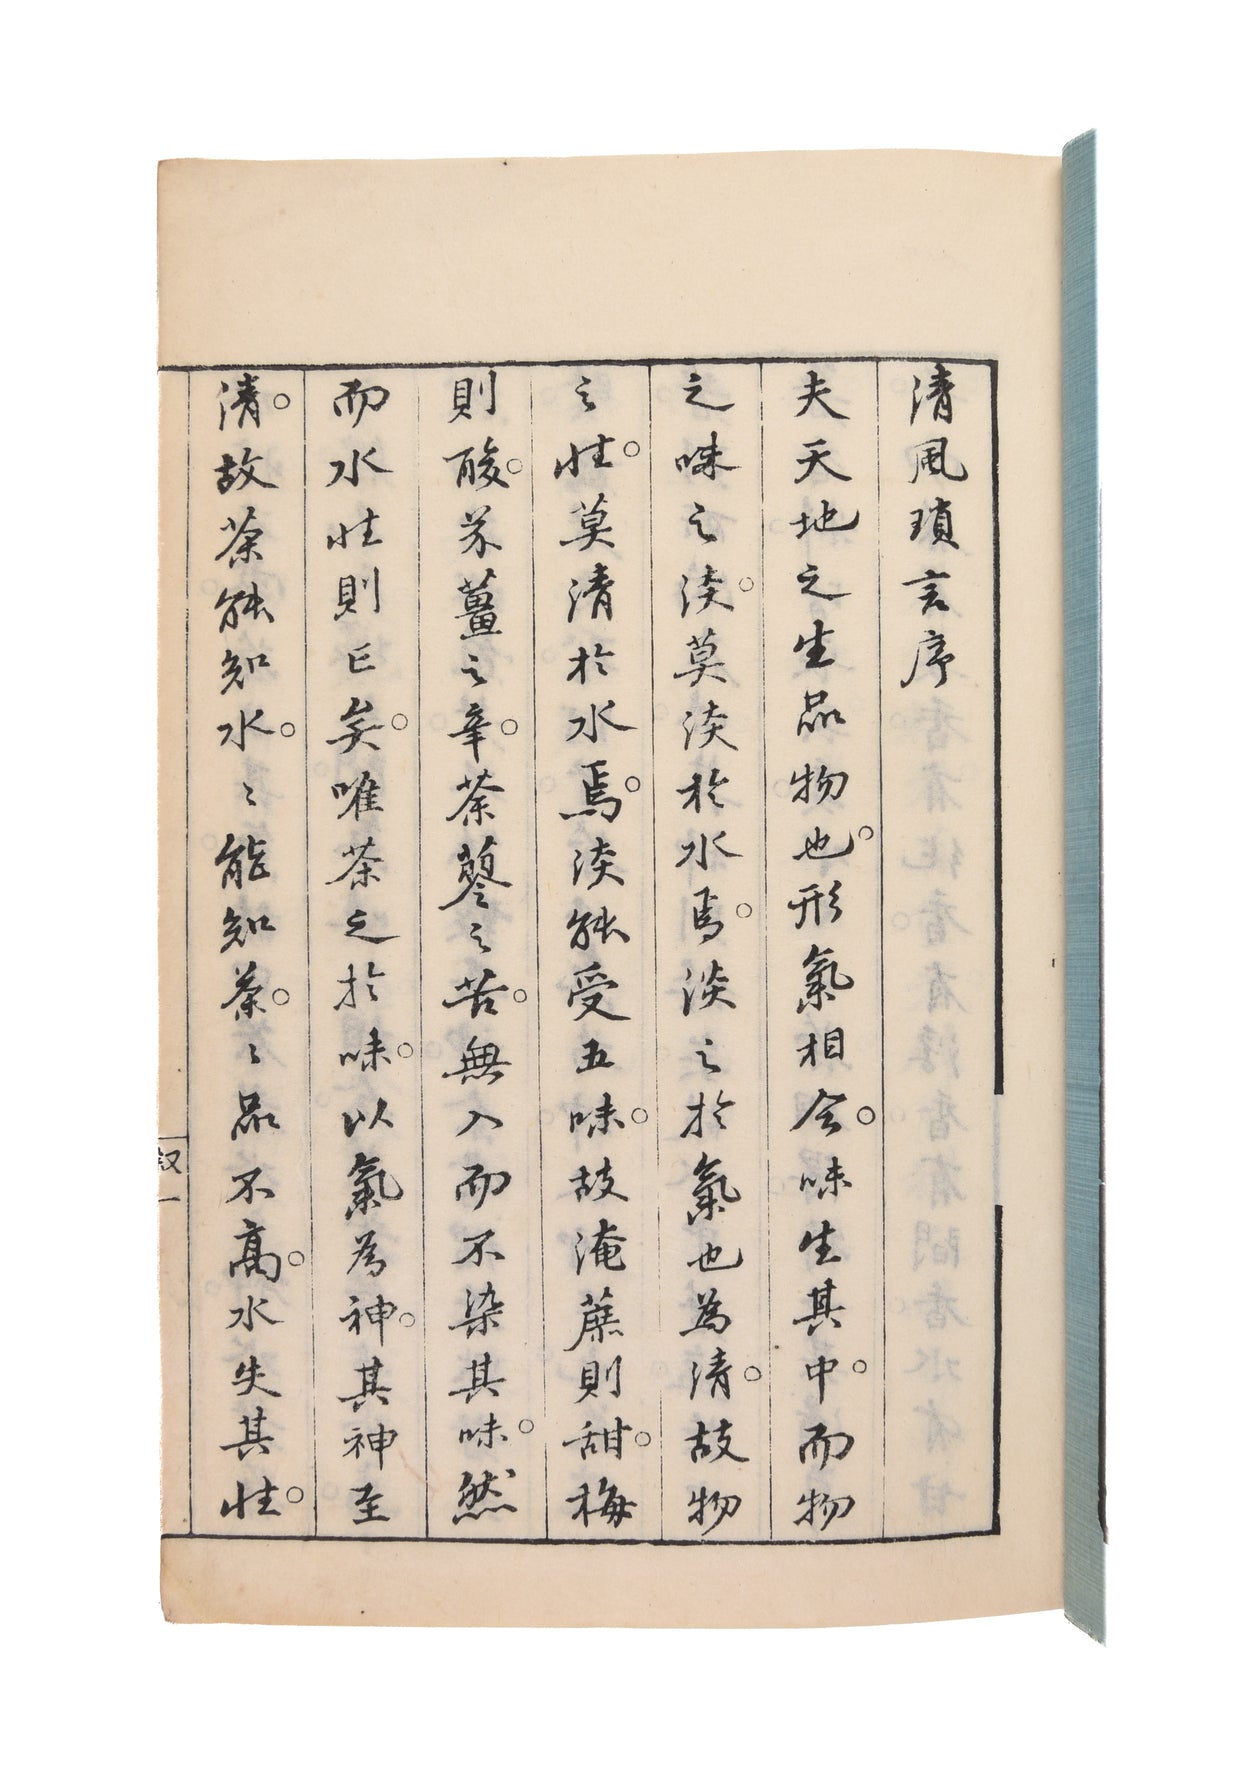 清風瑣言序
夫天地之生品物也。形氣相合。味生其中。而物
之味之淡。莫淡於水焉。淡淡之於氣也為清。故物
之性。莫清於水焉。淡能受五味。故淹蔗則甜。梅
則酸。芥薑之辛。荼蓼之苦。無入而不染其味。然
而水性則已矣。唯茶之於味。以氣為神。其神至
清。故茶能知水。〻能知茶。〻品不高。水失其性。
叙一